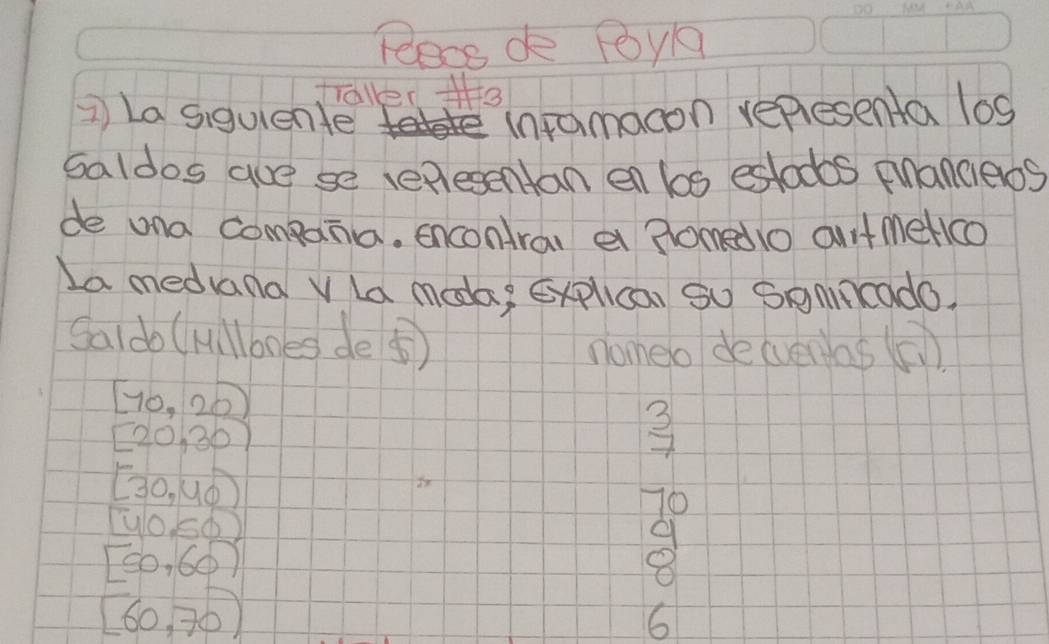 Pasos de Poyla
Taller #3
1) La siguiente infamacon representa los
saldos que se representan en los estados financieros
de una compañia. encontrar el Promedio aritmetico
La mediana y la moda; Explicar su significado.
Saldo (Millones de $) numero de cuentas (fi).
[10, 20) 3
[20, 30) 7
[30, 40) 10
[40, 50) 9
[50, 60) 8
[60, 70) 6